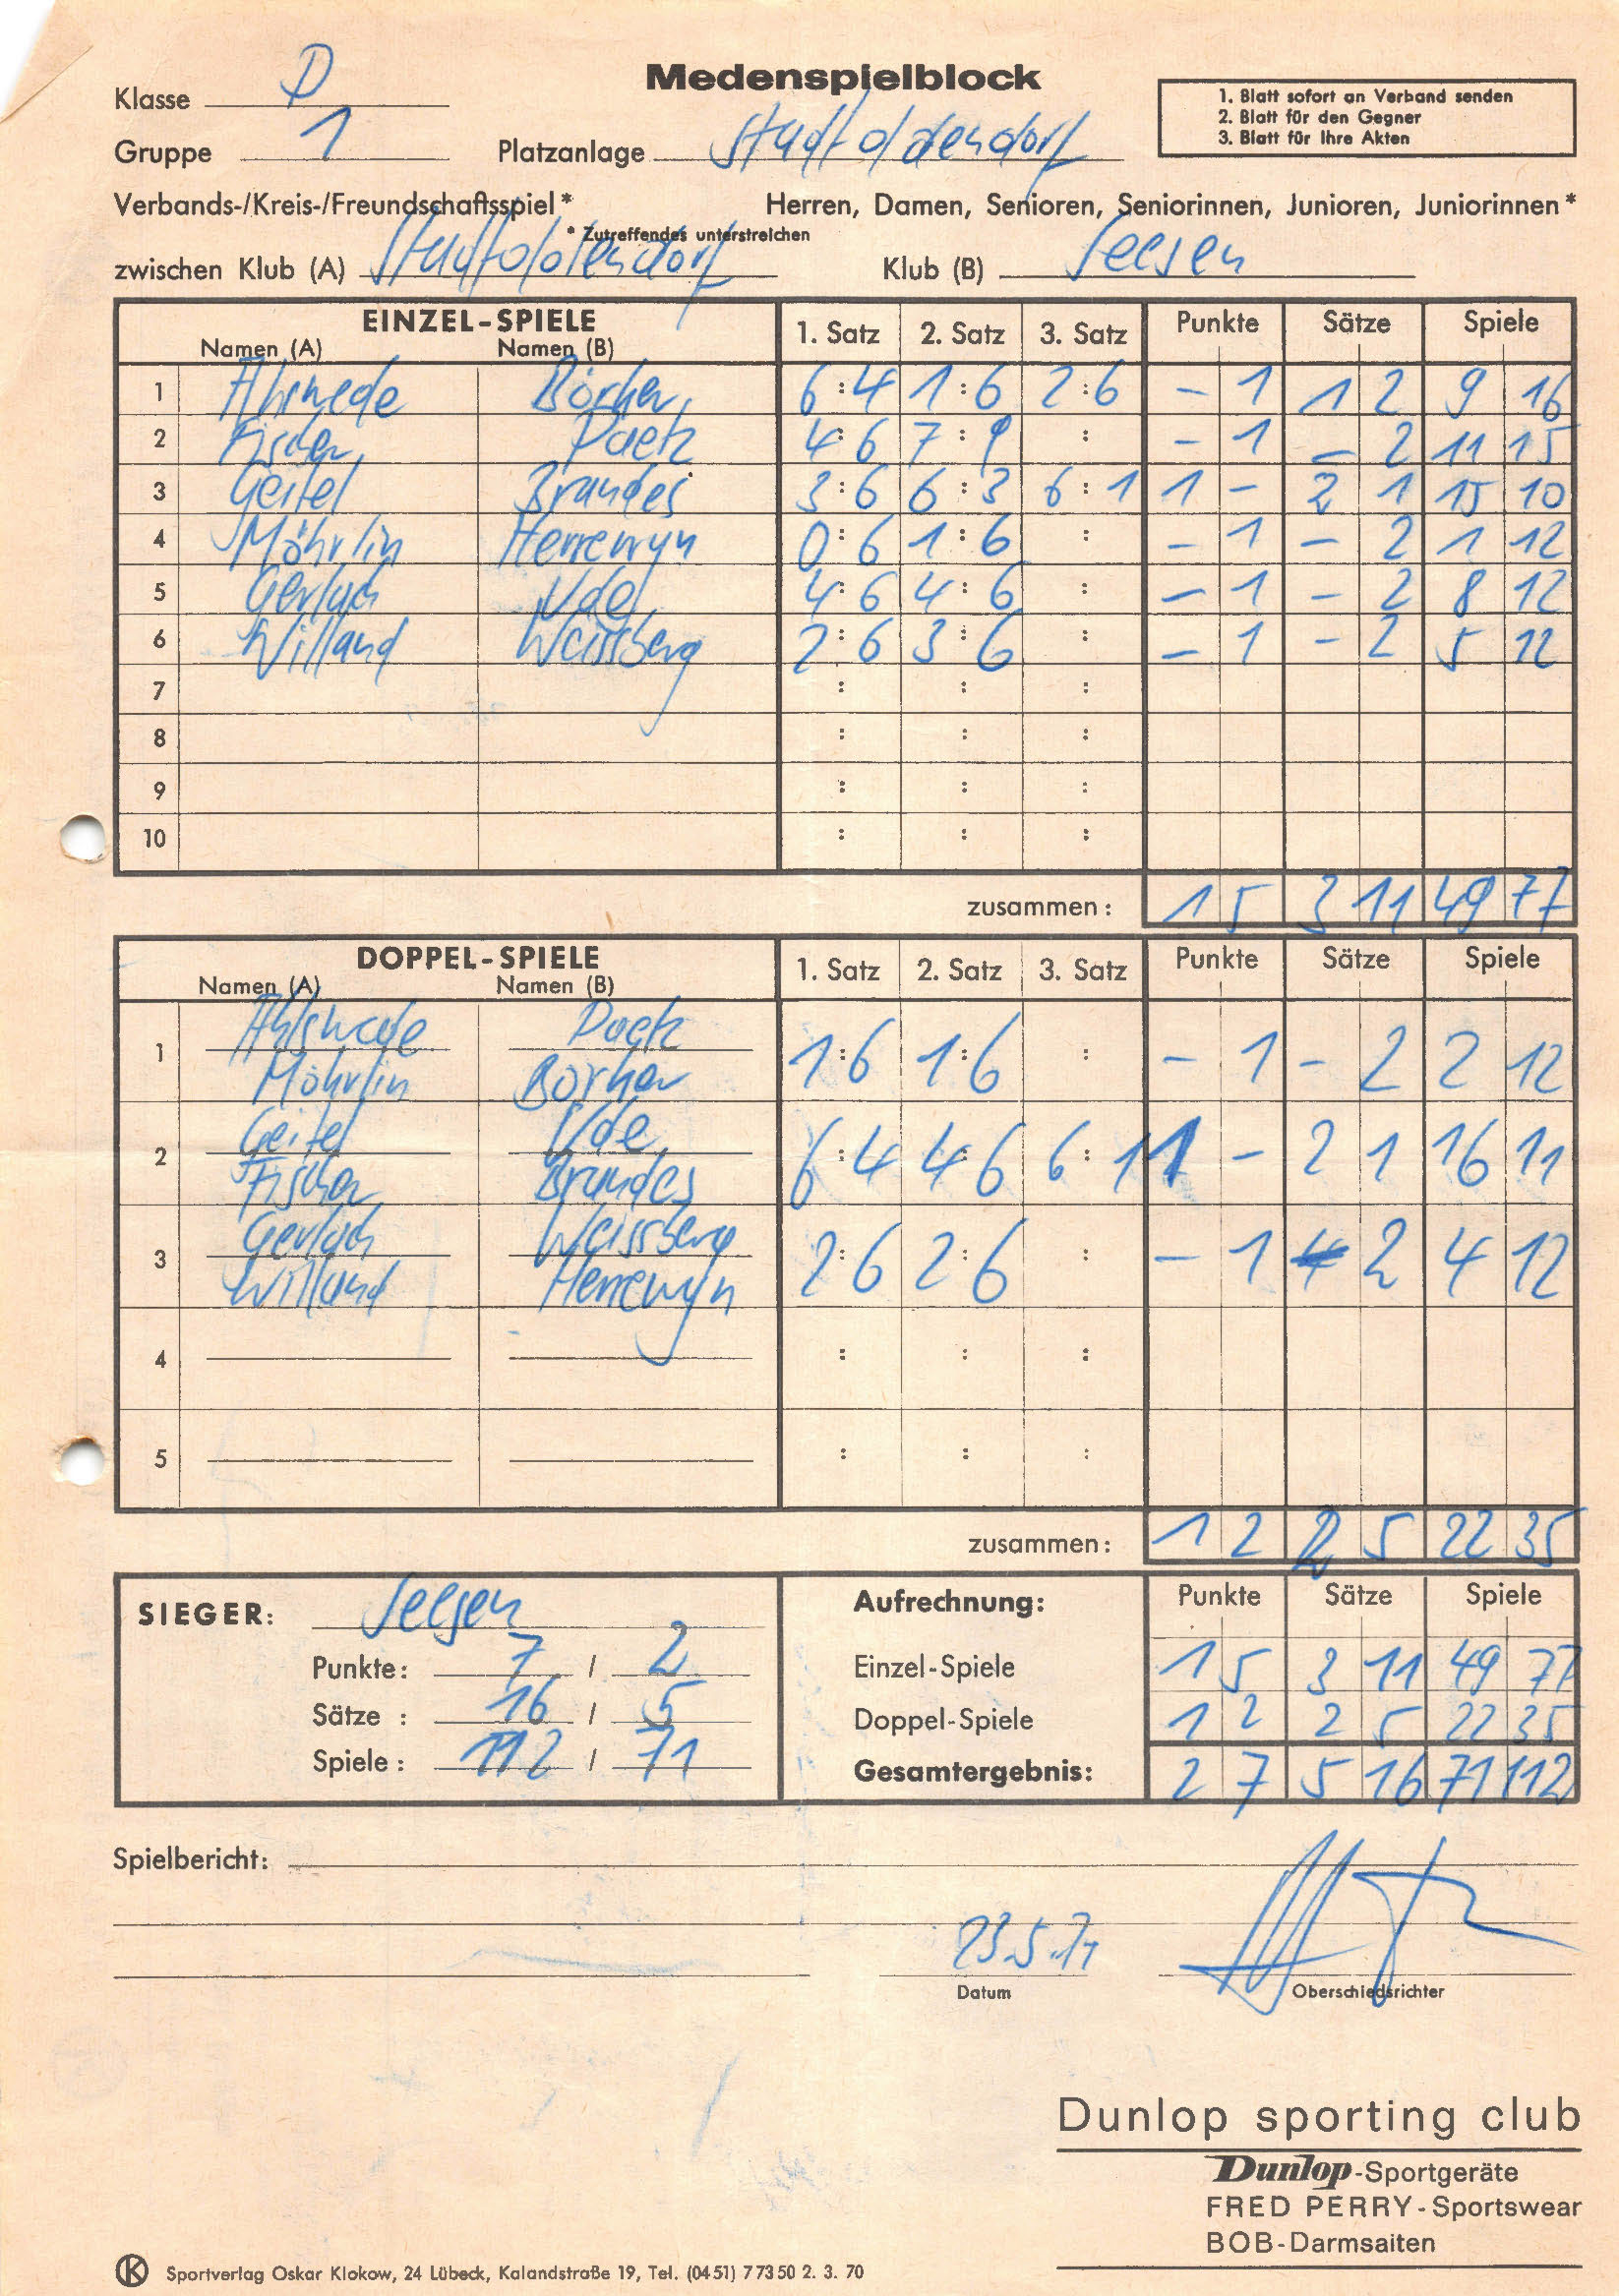 Medenspielblock
Klasse D
Gruppe 1 Platzanlage Stadtoldendorf
1. Blatt sofort an Verband senden
2. Blatt für den Gegner
3. Blatt für Ihre Akten
Verbands-/Kreis-/Freundschaftsspiel * Herren, Damen, Senioren, Seniorinnen, Junioren, Juniorinnen *
* Zutreffendes unterstreichen
zwischen Klub (A) Stadtoldendorf Klub (B) Seesen
EINZEL-SPIELE 1. Satz 2. Satz 3. Satz Punkte Sätze Spiele
Namen (A) Namen (B)
1 Ahlswede Börker 6:4 1:6 2:6 - 1 1 2 9 16
2 Fischer Paetz 4:6 7:9 : - 1 - 2 11 15
3 Geitel Brandes 3:6 6:3 6:1 1 - 2 1 15 10
4 Möhrlin Herrewyn 0:6 1:6 : - 1 - 2 1 12
5 Gerlach Ude 4:6 4:6 : - 1 - 2 8 12
6 Willand Weissberg 2:6 3:6 : - 1 - 2 5 12
7 : : :
8 : : :
9 : : :
10 : : :
zusammen: 1 5 3 11 49 77
DOPPEL-SPIELE 1. Satz 2. Satz 3. Satz Punkte Sätze Spiele
Namen (A) Namen (B)
Ahlswede Paetz
1 1:6 1:6 : - 1 - 2 2 12
Möhrlin Börker
Geitel Ude
2 6:4 4:6 6:1 1 - 2 1 16 11
Fischer Brandes
Gerlach Weissberg
3 2:6 2:6 : - 1 2 4 12
Willand Herrewyn
4 : : :
5 : : :
zusammen: 1 2 2 5 22 35
SIEGER: Seesen Aufrechnung: Punkte Sätze Spiele
Punkte: 7 / 2 Einzel-Spiele 1 5 3 11 49 77
Sätze : 16 / 5 Doppel-Spiele 1 2 2 5 22 35
Spiele : 112 / 71 Gesamtergebnis: 2 7 5 16 71 112
Spielbericht:
23.5.71
Datum Oberschiedsrichter
Dunlop sporting club
Dunlop-Sportgeräte
FRED PERRY-Sportswear
BOB-Darmsaiten
K Sportverlag Oskar Klokow, 24 Lübeck, Kalandstraße 19, Tel. (0451) 77350 2. 3. 70